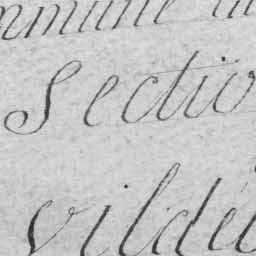 mmune
Sectio
vildé